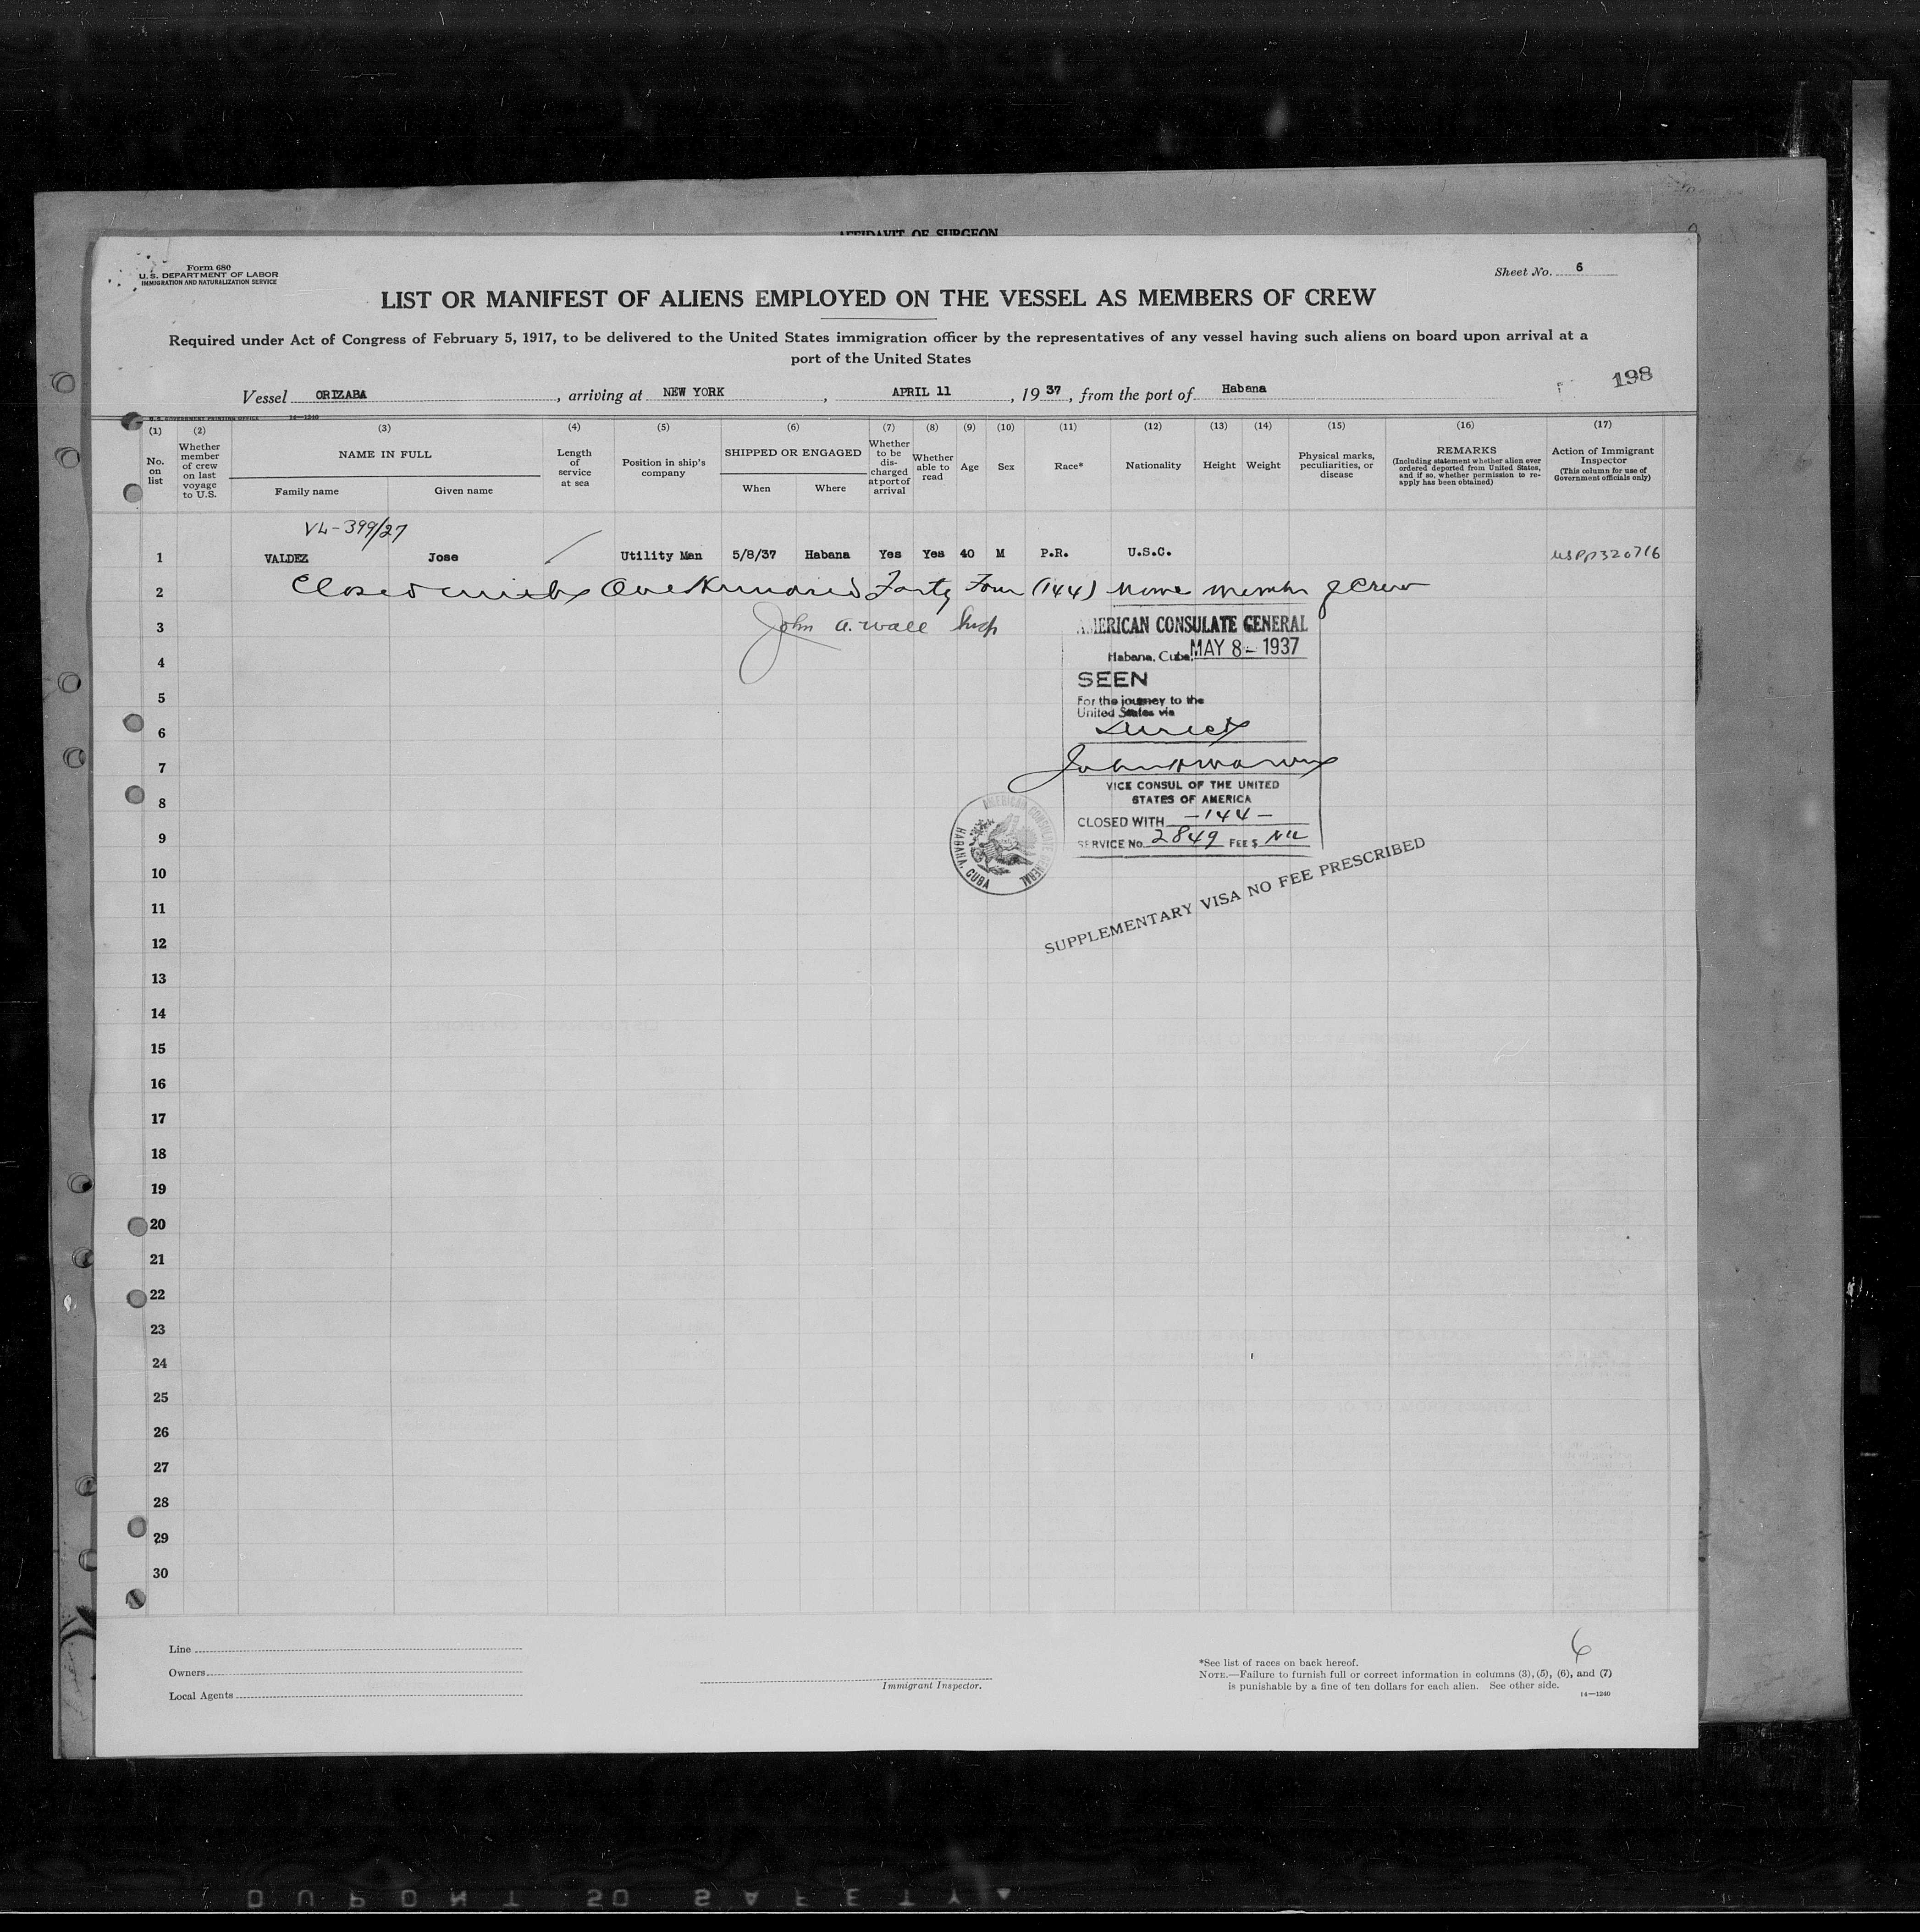 AFFIDAVIT OF SURGEON
Form 680
U.S. DEPARTMENT OF LABOR
IMMIGRATION AND NATURALIZATION SERVICE
Sheet No. 6
LIST OR MANIFEST OF ALIENS EMPLOYED ON THE VESSEL AS MEMBERS OF CREW
Required under Act of Congress of February 5, 1917, to be delivered to the United States immigration officer by the representatives of any vessel having such aliens on board upon arrival at a
port of the United States
198
Vessel ORIZABA, arriving at NEW YORK, APRIL 11, 1937, from the port of Habana
U.S. GOVERNMENT PRINTING OFFICE 14—1240
(1) (2) (3) (4) (5) (6) (7) (8) (9) (10) (11) (12) (13) (14) (15) (16) (17)
No. on list
Whether member of crew on last voyage to U.S.
NAME IN FULL
Family name Given name
Length of service at sea
Position in ship's company
SHIPPED OR ENGAGED
When Where
Whether to be discharged at port of arrival
Whether able to read
Age
Sex
Race*
Nationality
Height
Weight
Physical marks, peculiarities, or disease
REMARKS
(Including statement whether alien ever ordered deported from United States, and if so, whether permission to reapply has been obtained)
Action of Immigrant Inspector
(This column for use of Government officials only)
VL-399/27
1 VALDEZ Jose Utility Man 5/8/37 Habana Yes Yes 40 M P.R. U.S.C. USPP320716
2 Closed with One Hundred Forty Four (144) Members of Crew
3 John A. Wall Insp
AMERICAN CONSULATE GENERAL
Habana, Cuba, MAY 8 - 1937
4
SEEN
5
For the journey to the
United States via
6 Direct
7
VICE CONSUL OF THE UNITED
STATES OF AMERICA
8
CLOSED WITH -144-
9
SERVICE No. 2849 FEE $ NIL
AMERICAN CONSULATE GENERAL
HABANA, CUBA
SUPPLEMENTARY VISA NO FEE PRESCRIBED
10
11
12
13
14
15
16
17
18
19
20
21
22
23
24
25
26
27
28
29
30
Line
Owners
Local Agents
Immigrant Inspector.
6
*See list of races on back hereof.
NOTE.—Failure to furnish full or correct information in columns (3), (5), (6), and (7)
is punishable by a fine of ten dollars for each alien. See other side.
14—1240
DUPONT 50 SAFETY